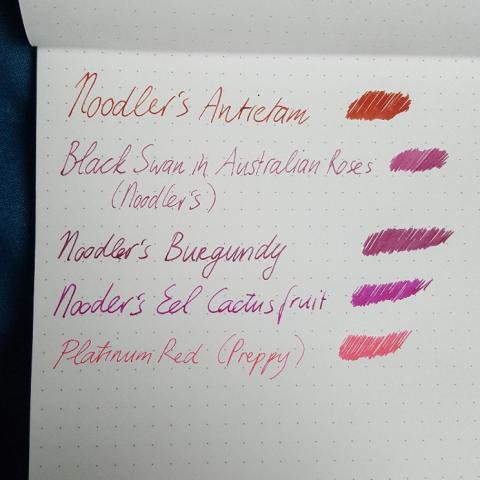 Noodler's Antietam
Black Swan in Australian Roses
(Noodler's)
Noodler's Burgundy
Nooder's Eel Cactus fruit
Platinum Red (Preppy)